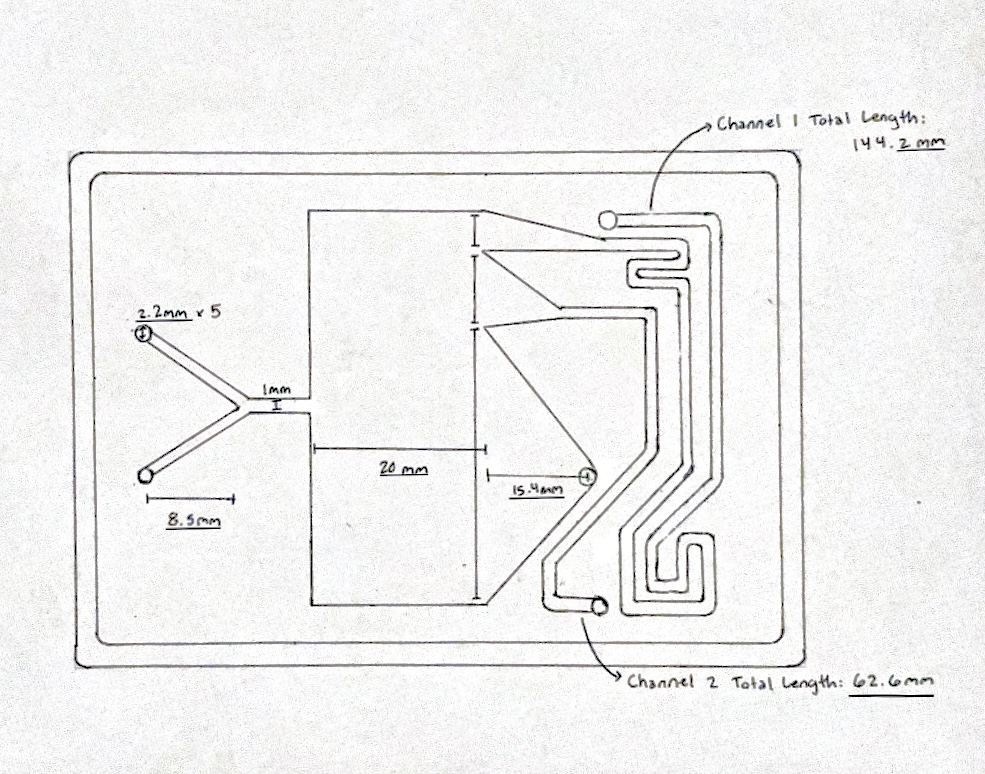 Channel 1 Total Length:
144.2mm
2.2mm x 5
1mm
20 mm
15.4mm
8.5mm
Channel 2 Total Length: 62.6mm